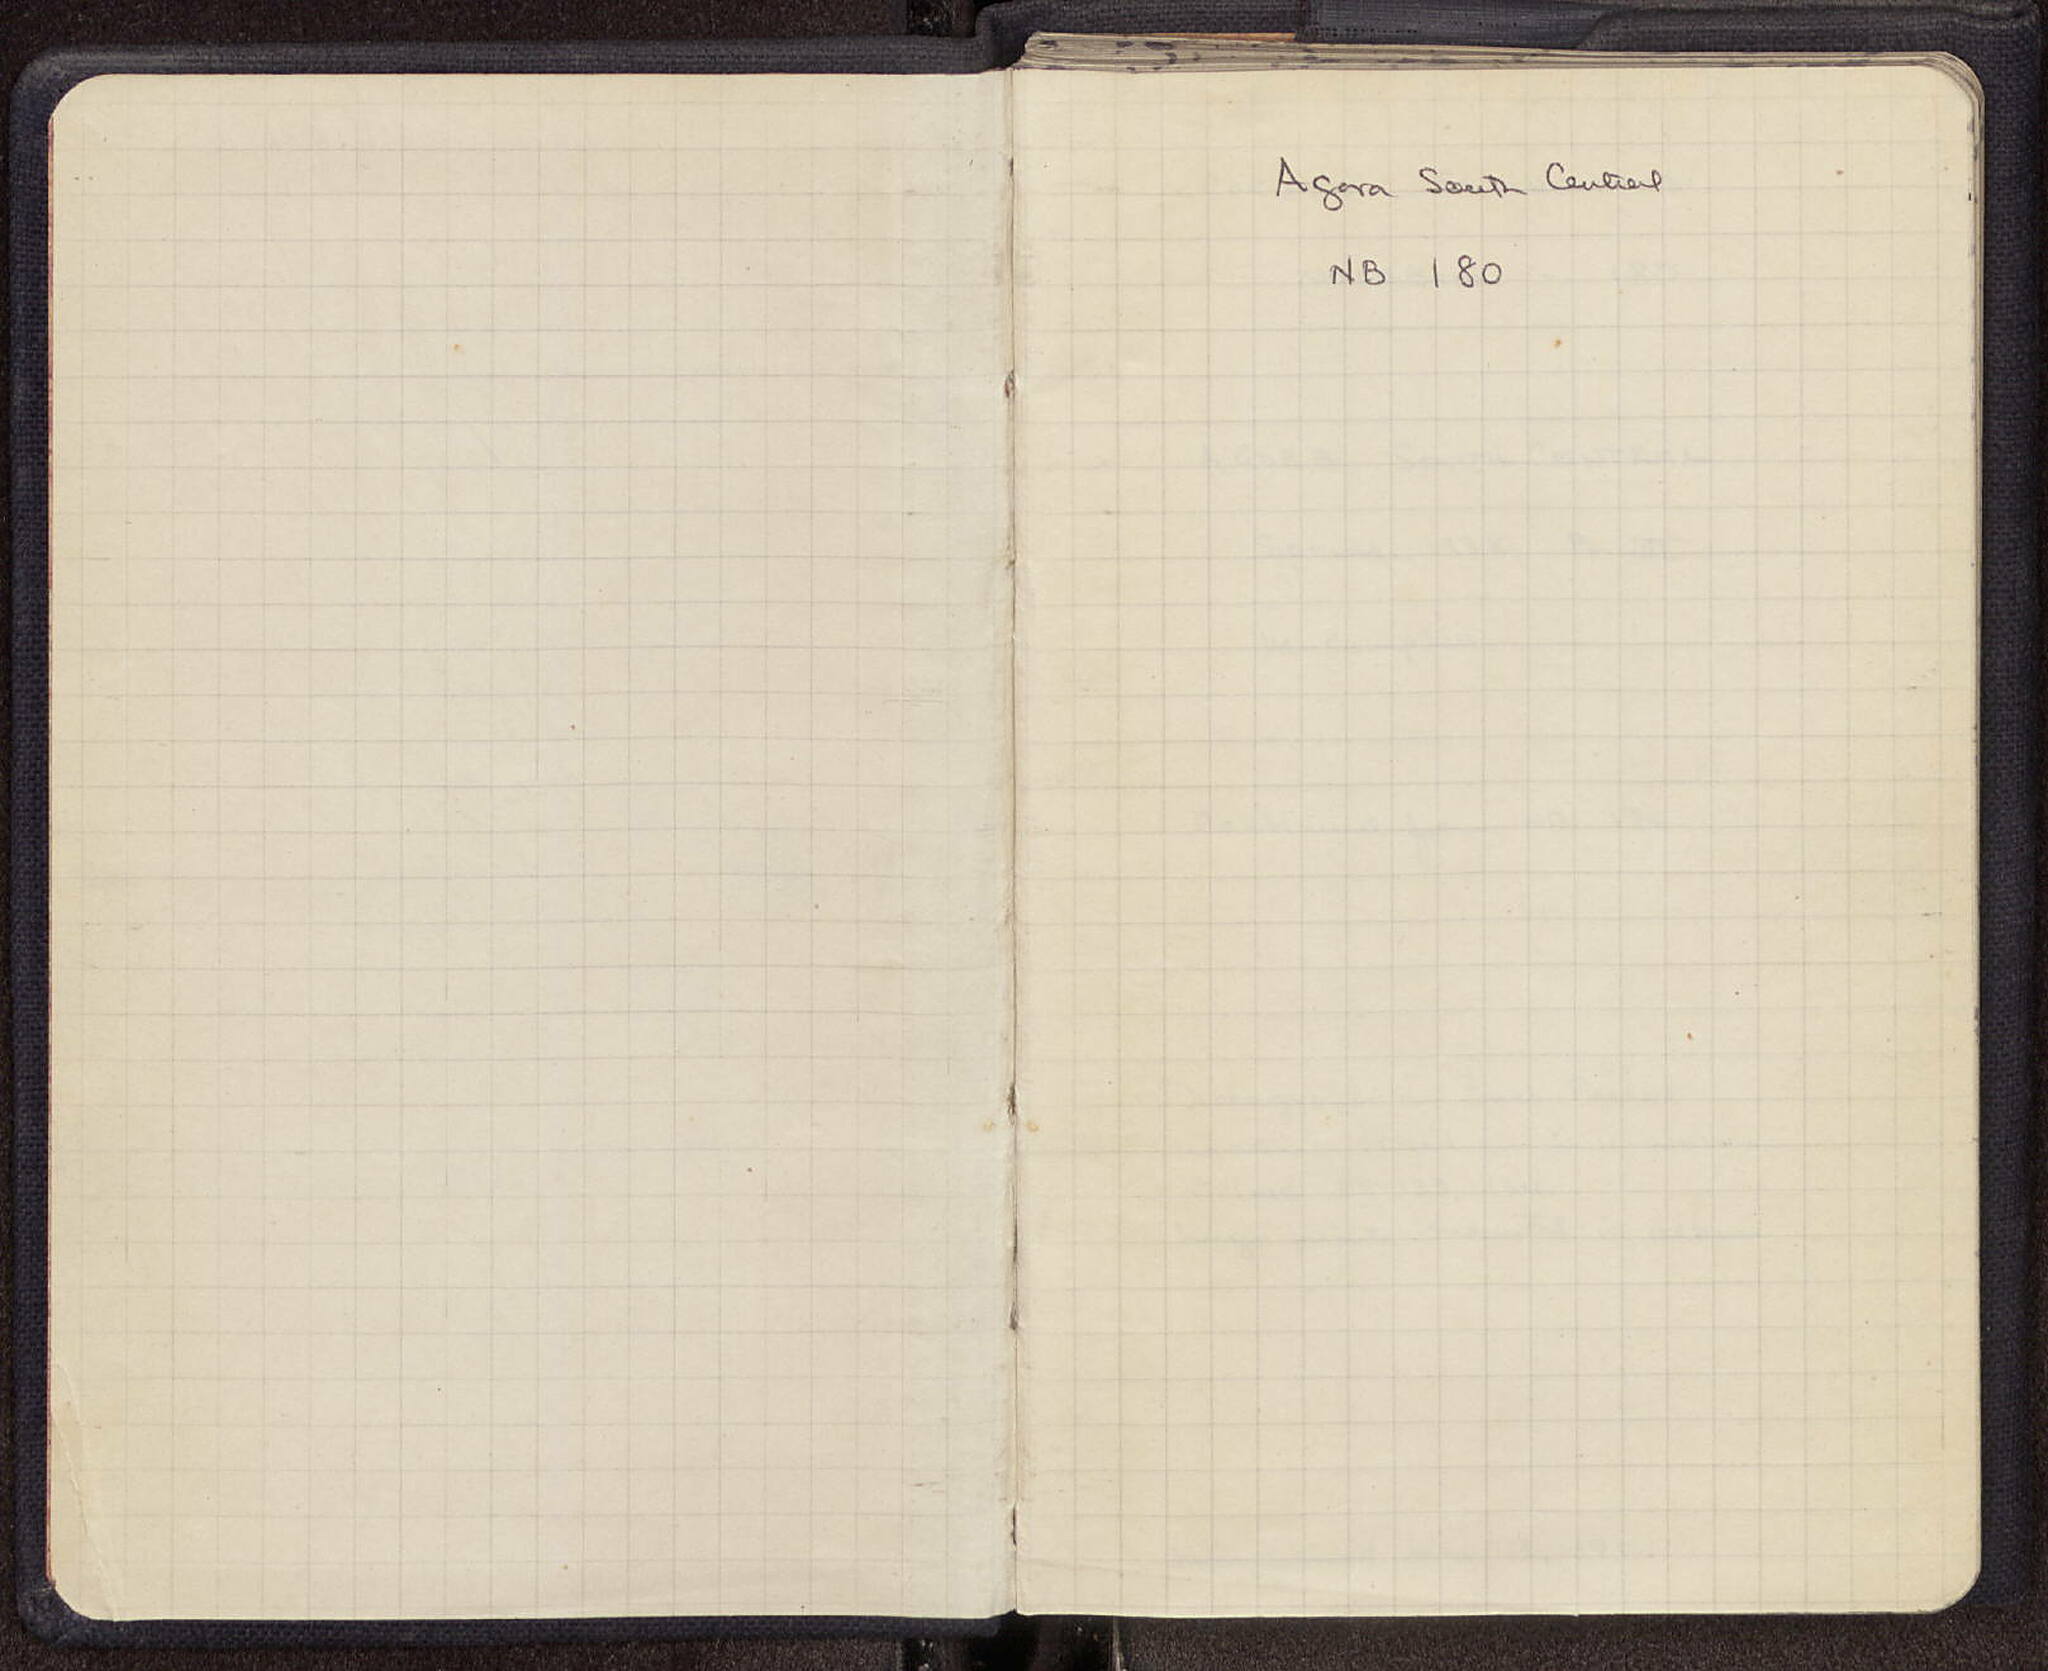 Agora South Central
NB 180